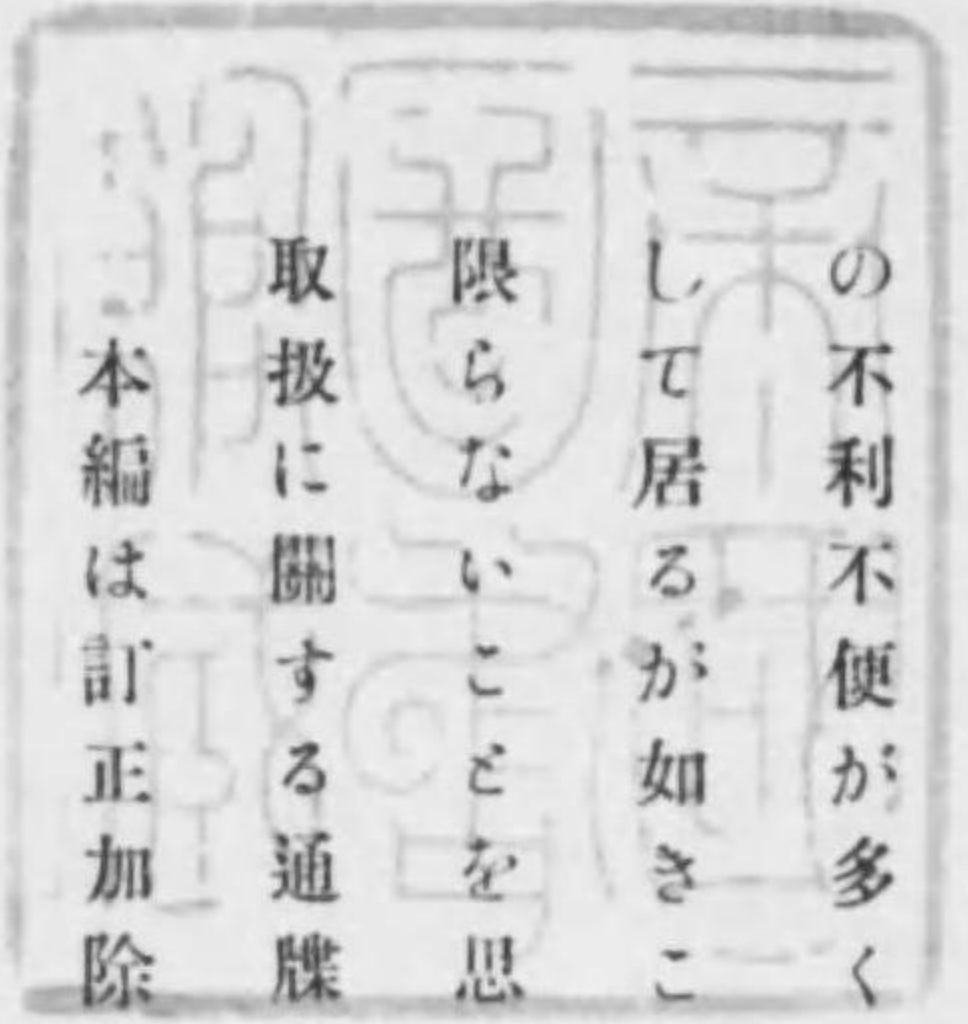 の不利不便が多く
して居るが如きこ
限らないことを思
取扱に關する通牒
本編は訂正加除